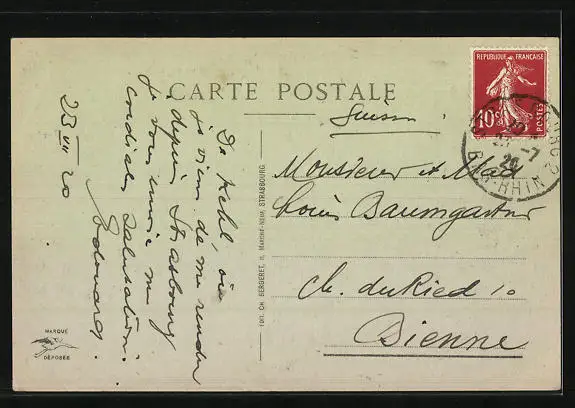 CARTE POSTALE
REPUBLIQUE FRANÇAISE
10c
POSTES
BAS-RHIN
-7
Suisse
Monsieur & Mad
Louis Baumgartner
Ch. du Ried 10
Bienne
De Kehl où
je viens de me rendre
depuis Strasbourg
je vous envoie me
cordiales salutations.
Edouard.
25 VII 20
EDIT. CH. BERGERET, 11, MARCHÉ-NEUF, STRASBOURG
MARQUE
DÉPOSÉE